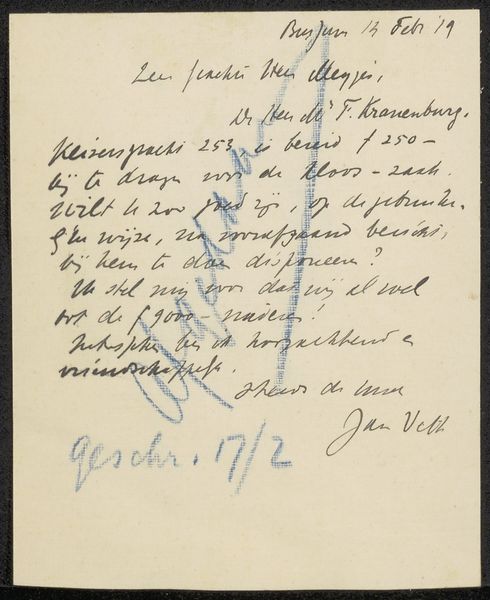 Bussum 14 Febr '19
Zeer geachte Heer Meyjes,
De Heer Mr F. Kranenburg,
Keizersgracht 253, is bereid f 250-
bij te dragen voor de Kloos-zaak.
Wilt U zoo goed zijn, op de gebruike-
lijke wijze, na voorafgaand bericht,
bij hem te doen disponeeren?
Ik stel mij voor dat wij al wel
tot de f 9000- naderen!
Inmiddels ben ik hoogachtend en
vriendschappelijk.
steeds de uwe
Jan Veth
Afgedaan
geschr. 17/2